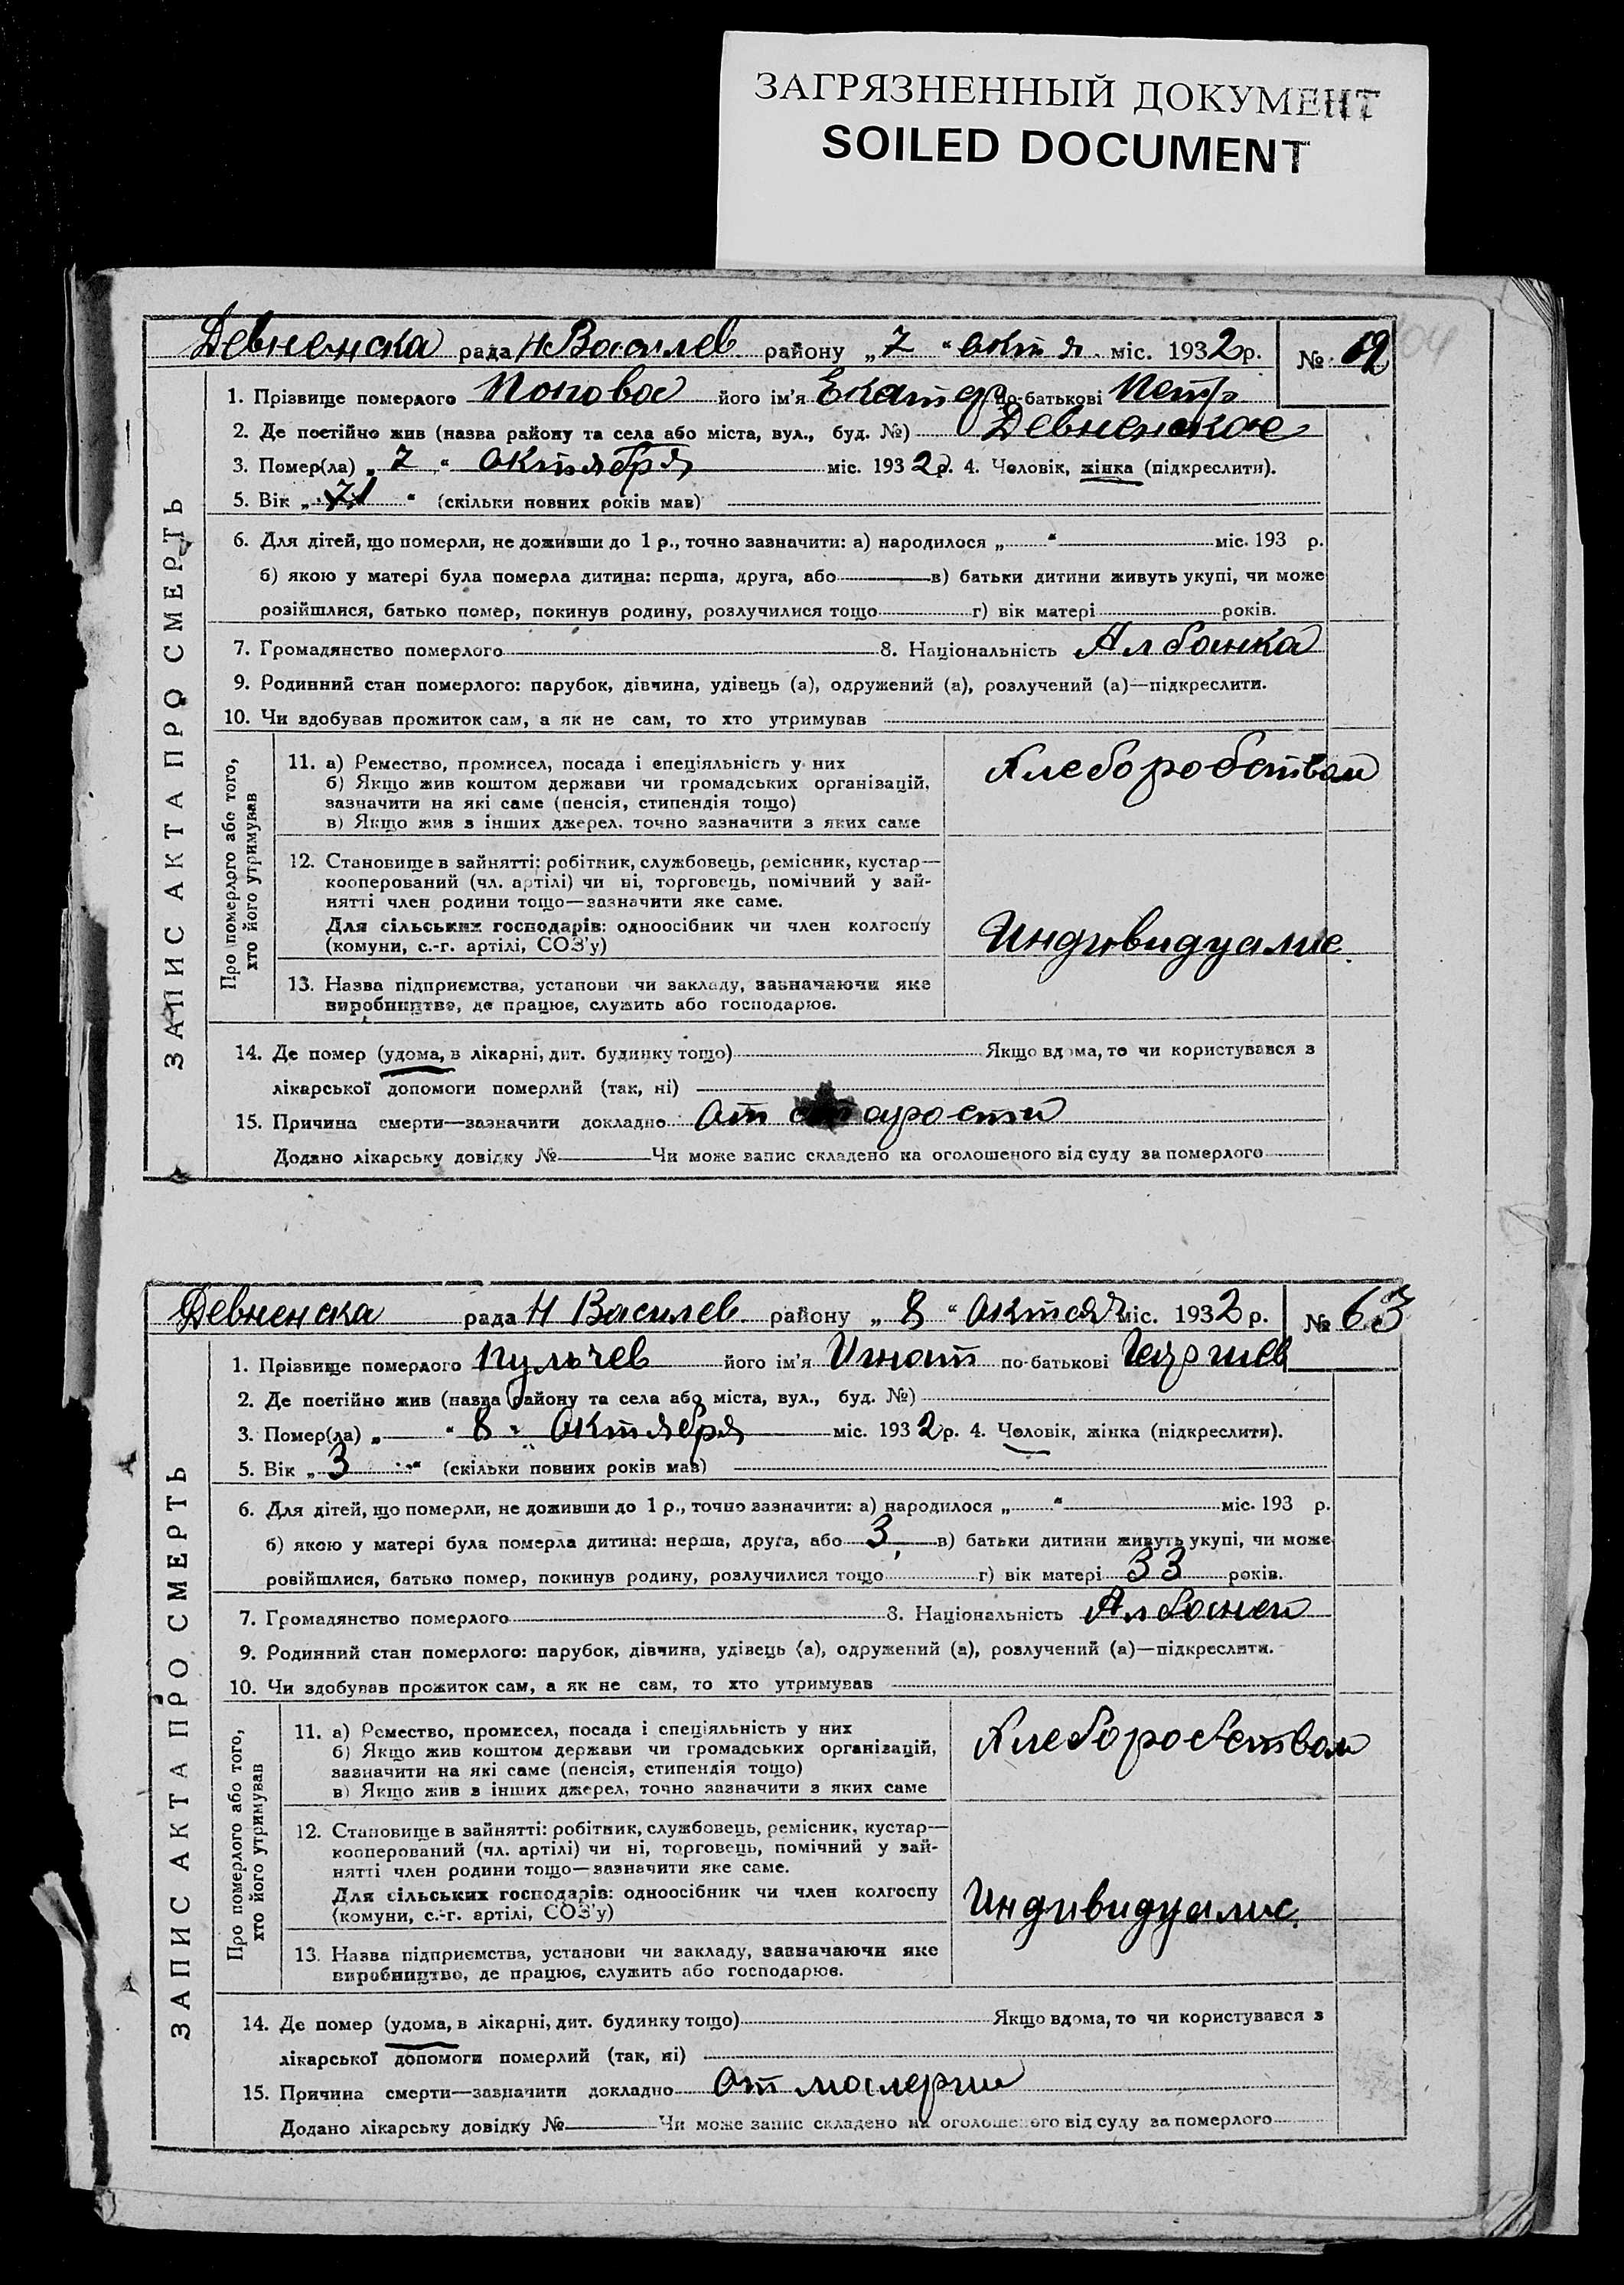 ЗАГРЯЗНЕННЫЙ ДОКУМЕНТ
SOILED DOCUMENT
104
Девненска рада Н Василев району „7“ октя. міс. 1932 р. №
ЗАПИС АКТА ПРО СМЕРТЬ
1. Прізвище померлого Попова його ім'я Екатер по-батькові Петр
2. Де постійно жив (назва району та села або міста, вул., буд. №) Девненское
3. Помер(ла) „7“ октября міс. 1932 р. 4. Чоловік, жінка (підкреслити).
5. Вік „71“ (скільки повних років мав)
6. Для дітей, що померли, не доживши до 1 р., точно зазначити: а) народилося „ “ міс. 193 р.
б) якою у матері була померла дитина: перша, друга, або в) батьки дитини живуть укупі, чи може
розійшлися, батько помер, покинув родину, розлучилися тощо г) вік матері років.
7. Громадянство померлого 8. Національність Албанка
9. Родинний стан померлого: парубок, дівчина, удівець (а), одружений (а), розлучений (а)—підкреслити.
10. Чи здобував прожиток сам, а як не сам, то хто утримував
Про померлого або того,
хто його утримував
11. а) Ремество, промисел, посада і спеціяльність у них
б) Якщо жив коштом держави чи громадських організацій,
зазначити на які саме (пенсія, стипендія тощо)
в) Якщо жив з інших джерел, точно зазначити з яких саме
Хлеборобством
12. Становище в зайнятті: робітник, службовець, ремісник, кустар—
кооперований (чл. артілі) чи ні, торговець, помічний у зай-
нятті член родини тощо—зазначити яке саме.
Для сільських господарів: одноосібник чи член колгоспу
(комуни, с.-г. артілі, СОЗ'у)
Индивидуалис.
13. Назва підприємства, установи чи закладу, зазначаючи яке
виробництво, де працює, служить або господарює.
14. Де помер (удома, в лікарні, дит. будинку тощо) Якщо вдома, то чи користувався з
лікарської допомоги померлий (так, ні)
15. Причина смерти—зазначити докладно от старости
Додано лікарську довідку № Чи може запис складено на оголошеного від суду за померлого
Девненска рада Н Василев району „8“ міс. 1932 р. № 63
ЗАПИС АКТА ПРО СМЕРТЬ
1. Прізвище померлого Пульчев його ім'я Игнат по-батькові
2. Де постійно жив (назва району та села або міста, вул., буд. №)
3. Помер(ла) „ “ 8 " Октября міс. 1932 р. 4. Чоловік, жінка (підкреслити).
5. Вік „3“ (скільки повних років мав)
6. Для дітей, що померли, не доживши до 1 р., точно зазначити: а) народилося „ “ міс. 193 р.
б) якою у матері була померла дитина: перша, друга, або 3, в) батьки дитини живуть укупі, чи може
розійшлися, батько помер, покинув родину, розлучилися тощо г) вік матері 33 років.
7. Громадянство померлого 8. Національність Албанец
9. Родинний стан померлого: парубок, дівчина, удівець (а), одружений (а), розлучений (а)—підкреслити.
10. Чи здобував прожиток сам, а як не сам, то хто утримував
Про померлого або того,
хто його утримував
11. а) Ремество, промисел, посада і спеціяльність у них
б) Якщо жив коштом держави чи громадських організацій,
зазначити на які саме (пенсія, стипендія тощо)
в) Якщо жив з інших джерел, точно зазначити з яких саме
Хлеборобством
12. Становище в зайнятті: робітник, службовець, ремісник, кустар—
кооперований (чл. артілі) чи ні, торговець, помічний у зай-
нятті член родини тощо—зазначити яке саме.
Для сільських господарів: одноосібник чи член колгоспу
(комуни, с.-г. артілі, СОЗ'у)
Индивидуалис.
13. Назва підприємства, установи чи закладу, зазначаючи яке
виробництво, де працює, служить або господарює.
14. Де помер (удома, в лікарні, дит. будинку тощо) Якщо вдома, то чи користувався з
лікарської допомоги померлий (так, ні)
15. Причина смерти—зазначити докладно от малерии
Додано лікарську довідку № Чи може запис складено на оголошеного від суду за померлого